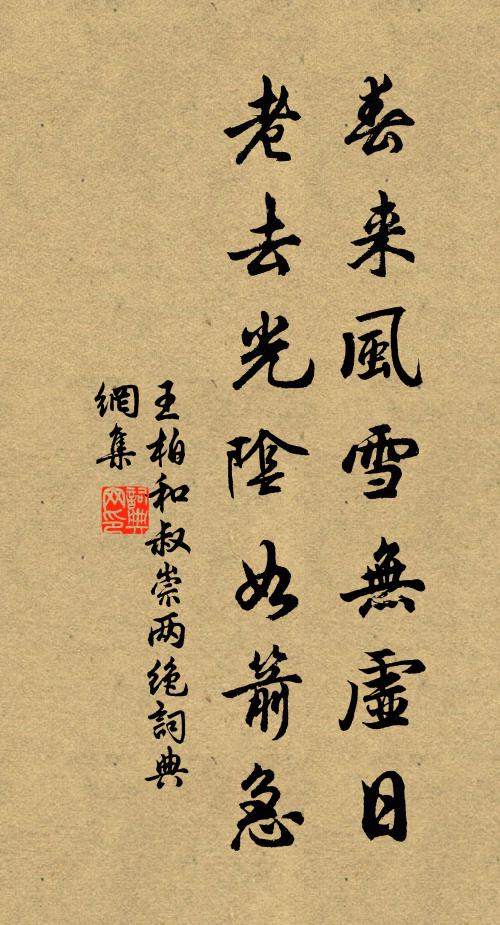 春来風雪無虛日
老去光陰如箭急
王柏和叔崇两绝詞典
網集
詞典網印